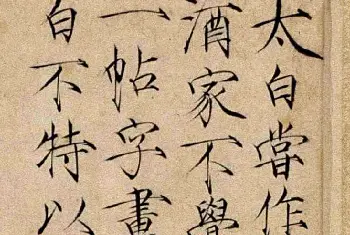 太白嘗作
酒家不學
一帖字畫
白不特以